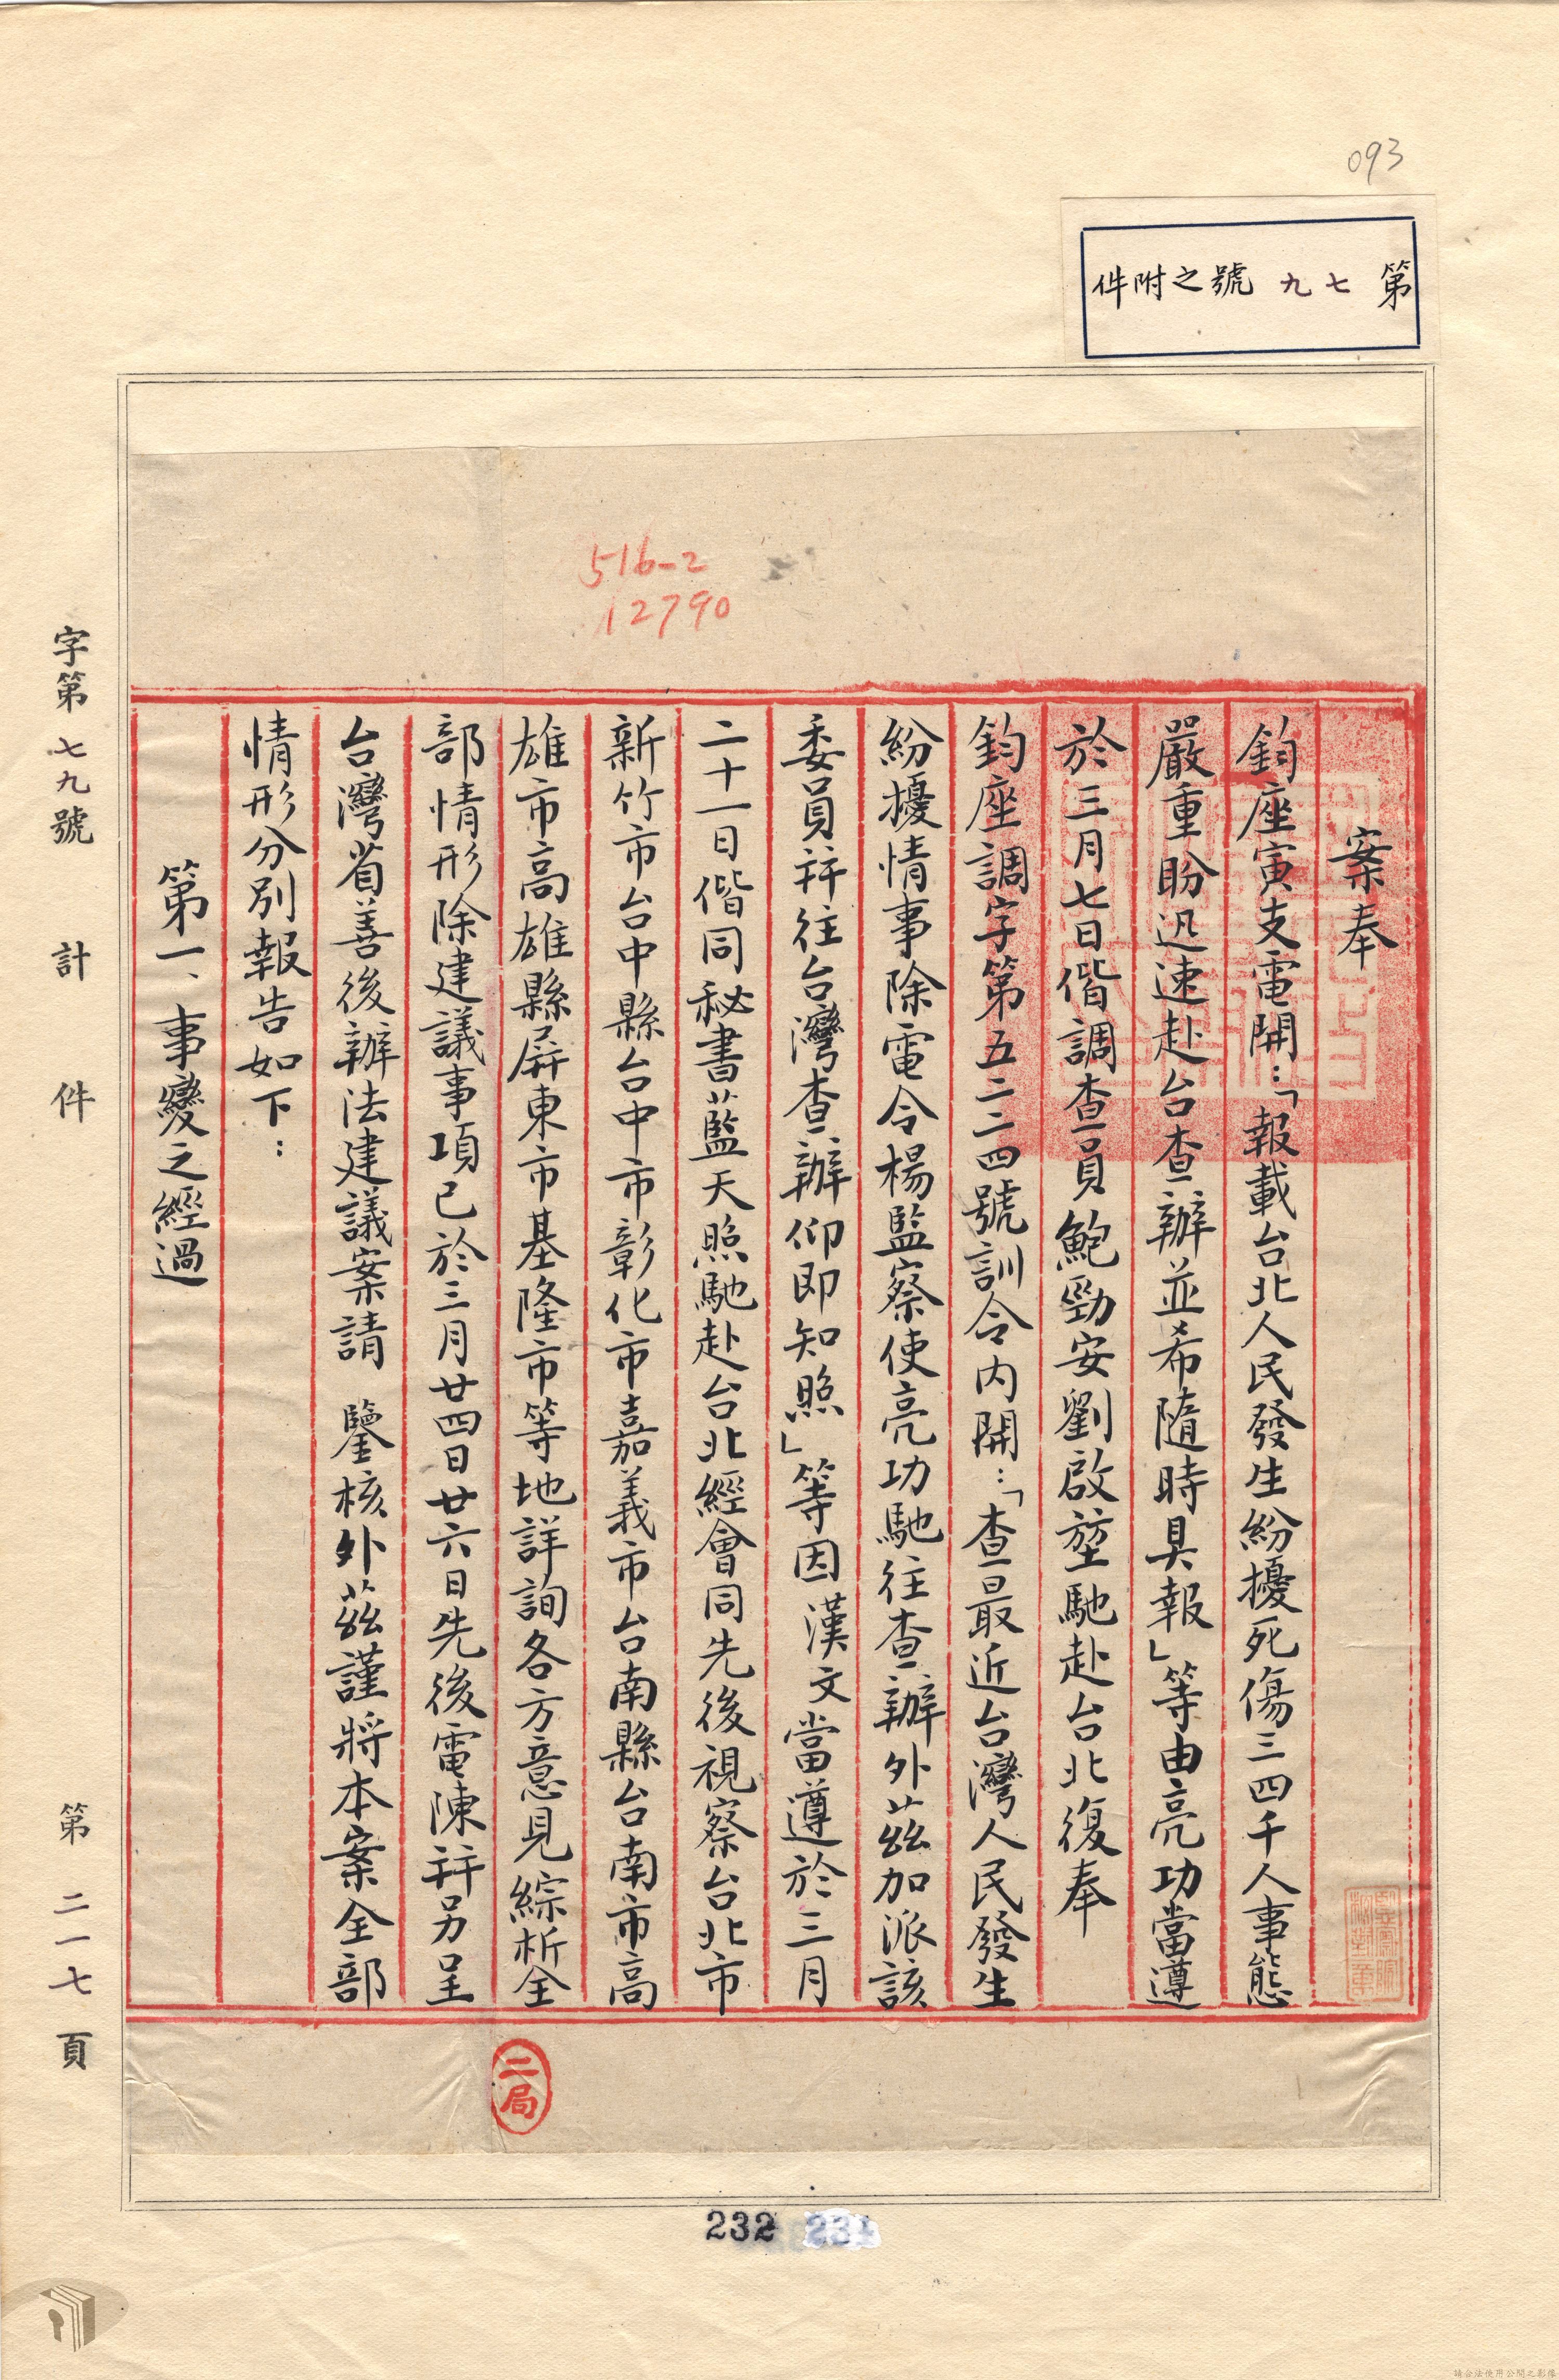 093
第七九號之附件
516-2
12790
案奉
鈞座寅支電開：「報載台北人民發生紛擾死傷三四千人事態
嚴重盼迅速赴台查辦並希隨時具報」等由亮功當遵
於三月七日偕調查員鮑勁安劉啟堃馳赴台北復奉
鈞座調字第五二二四號訓令內開：「查最近台灣人民發生
紛擾情事除電令楊監察使亮功馳往查辦外茲加派該
委員并往台灣查辦仰即知照」等因漢文當遵於三月
二十一日偕同秘書藍天照馳赴台北經會同先後視察台北市
新竹市台中縣台中市彰化市嘉義市台南縣台南市高
雄市高雄縣屏東市基隆市等地詳詢各方意見綜析全
部情形除建議事項已於三月廿四日廿六日先後電陳并另呈
台灣省善後辦法建議案請　鑒核外茲謹將本案全部
情形分別報告如下：
第一、事變之經過
二局
字第七九號　計　件　第二一七頁
232 231
請合法使用公開之影像